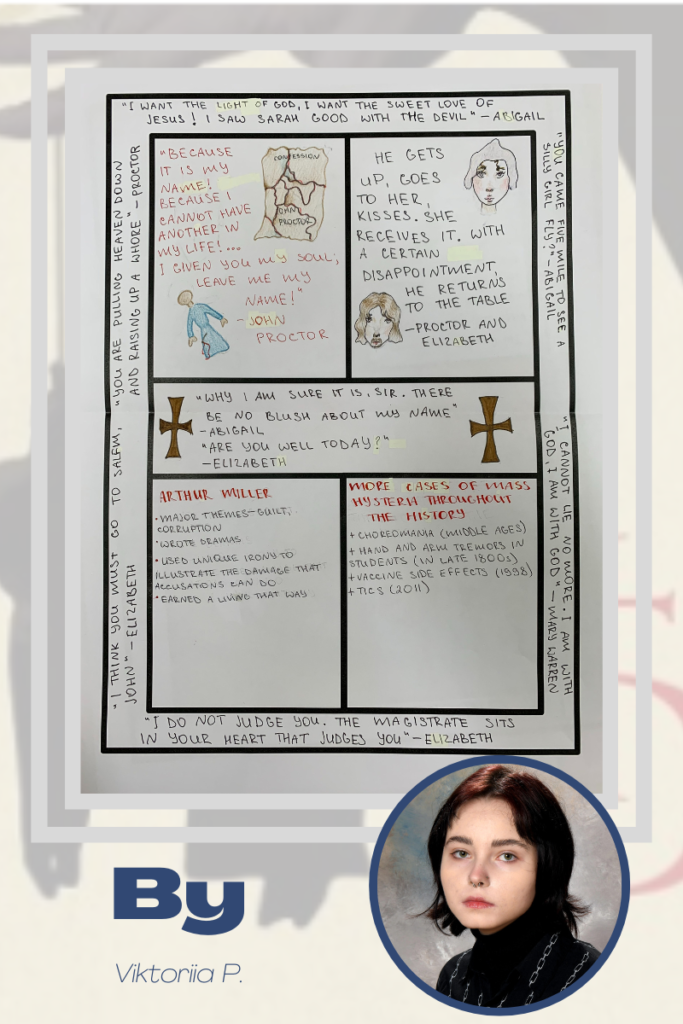 "I WANT THE LIGHT OF GOD, I WANT THE SWEET LOVE OF
JESUS! I SAW SARAH GOOD WITH THE DEVIL" - ABIGAIL
"YOU ARE PULLING HEAVEN DOWN
AND RAISING UP A WHORE" - PROCTOR
"YOU CAME FIVE MILE TO SEE A
SILLY GIRL FLY?" - ABIGAIL
"BECAUSE
IT IS MY
NAME!
BECAUSE I
CANNOT HAVE
ANOTHER IN
MY LIFE!...
I GIVEN YOU MY SOUL;
LEAVE ME MY
NAME!"
- JOHN
PROCTOR
CONFESSION
JOHN
PROCTOR
HE GETS
UP, GOES
TO HER,
KISSES. SHE
RECEIVES IT. WITH
A CERTAIN
DISAPPOINTMENT,
HE RETURNS
TO THE TABLE
- PROCTOR AND
ELIZABETH
"WHY I AM SURE IT IS, SIR. THERE
BE NO BLUSH ABOUT MY NAME"
- ABIGAIL
"ARE YOU WELL TODAY?"
- ELIZABETH
"I THINK YOU MUST GO TO SALEM,
JOHN" - ELIZABETH
"I CANNOT LIE NO MORE. I AM WITH
GOD, I AM WITH GOD" - MARY WARREN
ARTHUR MILLER
• MAJOR THEMES - GUILT,
CORRUPTION
• WROTE DRAMAS
• USED UNIQUE IRONY TO
ILLUSTRATE THE DAMAGE THAT
ACCUSATIONS CAN DO
• EARNED A LIVING THAT WAY
MORE CASES OF MASS
HYSTERIA THROUGHOUT
THE HISTORY
+ CHOREOMANIA (MIDDLE AGES)
+ HAND AND ARM TREMORS IN
STUDENTS (IN LATE 1800s)
+ VACCINE SIDE EFFECTS (1998)
+ TICS (2011)
"I DO NOT JUDGE YOU. THE MAGISTRATE SITS
IN YOUR HEART THAT JUDGES YOU" - ELIZABETH
By
Viktoriia P.